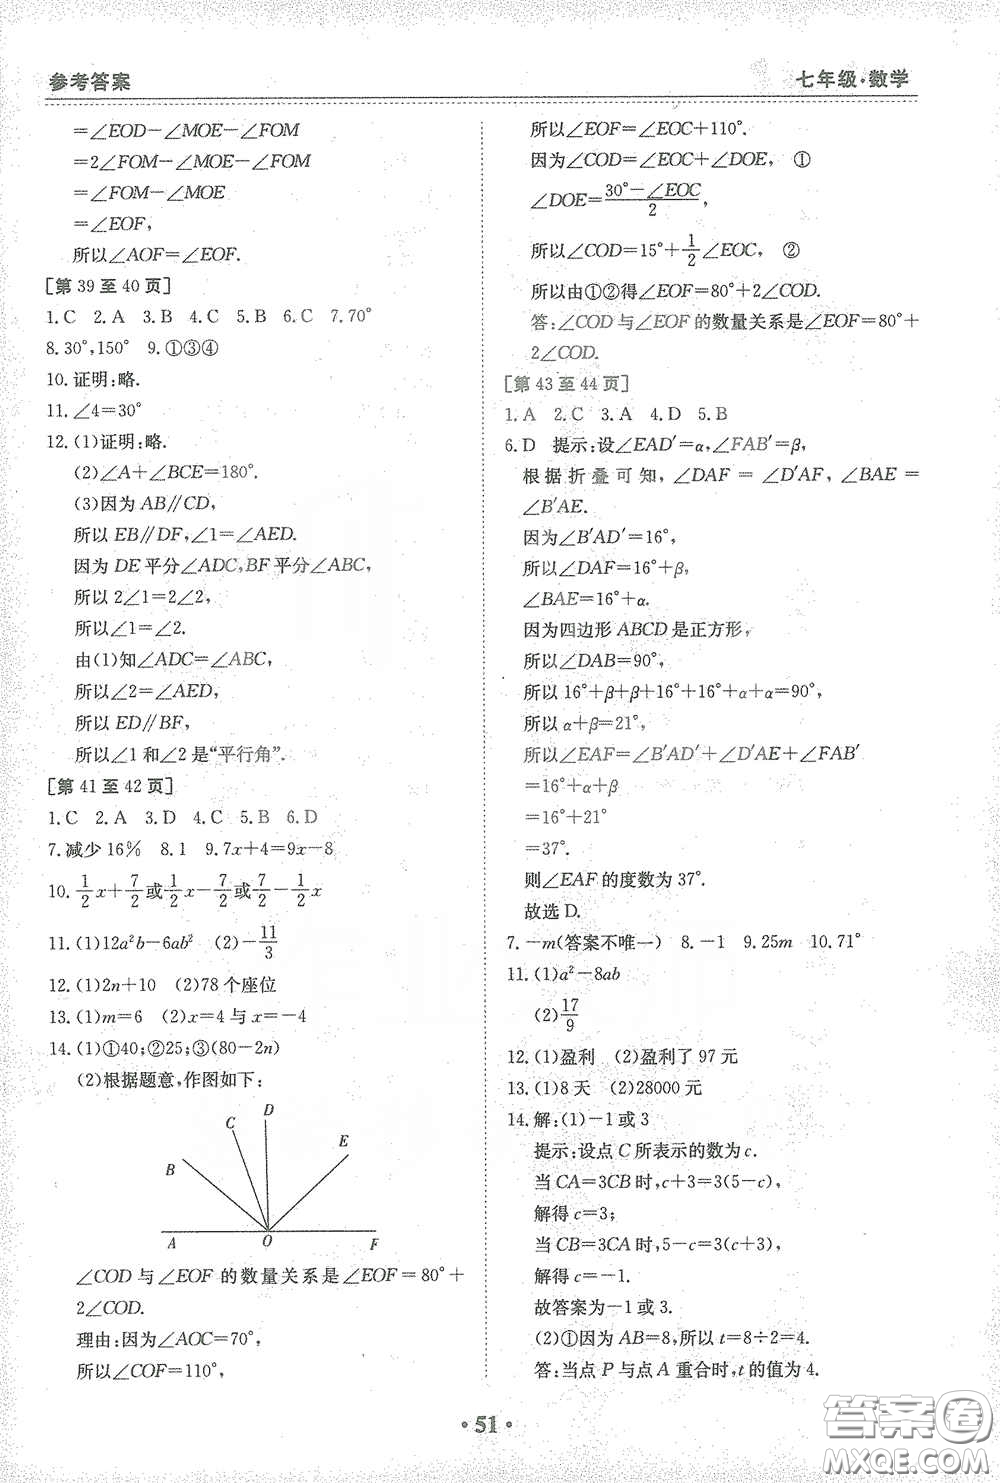 参考答案
七年级·数学
=∠EOD-∠MOE-∠FOM
=2∠FOM-∠MOE-∠FOM
=∠FOM-∠MOE
=∠EOF,
所以∠AOF=∠EOF.
[第 39 至 40 页]
1.C 2.A 3.B 4.C 5.B 6.C 7.70°
8.30°,150° 9.①③④
10.证明:略.
11.∠4=30°
12.(1)证明:略.
(2)∠A+∠BCE=180°.
(3)因为 AB∥CD,
所以 EB∥DF,∠1=∠AED.
因为 DE平分∠ADC,BF平分∠ABC,
所以 2∠1=2∠2,
所以∠1=∠2.
由(1)知∠ADC=∠ABC,
所以∠2=∠AED,
所以 ED∥BF,
所以∠1 和∠2 是“平行角”.
[第 41 至 42 页]
1.C 2.A 3.D 4.C 5.B 6.D
7.减少 16% 8.1 9.7x+4=9x-8
10. 1/2 x+7/2 或 1/2 x-7/2 或 7/2-1/2 x
11.(1)12a²b-6ab² (2)-11/3
12.(1)2n+10 (2)78 个座位
13.(1)m=6 (2)x=4 与 x=-4
14.(1)①40;②25;③(80-2n)
(2)根据题意,作图如下:
D
C
E
B
A
O
F
∠COD 与∠EOF 的数量关系是∠EOF=80°+
2∠COD.
理由:因为∠AOC=70°,
所以∠COF=110°,
所以∠EOF=∠EOC+110°.
因为∠COD=∠EOC+∠DOE, ①
∠DOE=(30°-∠EOC)/2,
所以∠COD=15°+1/2∠EOC, ②
所以由①②得∠EOF=80°+2∠COD.
答:∠COD 与∠EOF 的数量关系是∠EOF=80°+
2∠COD.
[第 43 至 44 页]
1.A 2.C 3.A 4.D 5.B
6.D 提示:设∠EAD′=α,∠FAB′=β,
根据折叠可知,∠DAF=∠D′AF,∠BAE=
∠B′AE.
因为∠B′AD′=16°,
所以∠DAF=16°+β,
∠BAE=16°+α.
因为四边形 ABCD 是正方形,
所以∠DAB=90°,
所以 16°+β+β+16°+16°+α+α=90°,
所以 α+β=21°,
所以∠EAF=∠B′AD′+∠D′AE+∠FAB′
=16°+α+β
=16°+21°
=37°.
则∠EAF 的度数为 37°.
故选 D.
7.-m(答案不唯一) 8.-1 9.25m 10.71°
11.(1)a²-8ab
(2)17/9
12.(1)盈利 (2)盈利了 97 元
13.(1)8 天 (2)28000 元
14.解:(1)-1 或 3
提示:设点 C 所表示的数为 c.
当 CA=3CB 时,c+3=3(5-c),
解得 c=3;
当 CB=3CA 时,5-c=3(c+3),
解得 c=-1.
故答案为-1 或 3.
(2)①因为 AB=8,所以 t=8÷2=4.
答:当点 P 与点 A 重合时,t 的值为 4.
·51·
答案卷
MXQE.COM